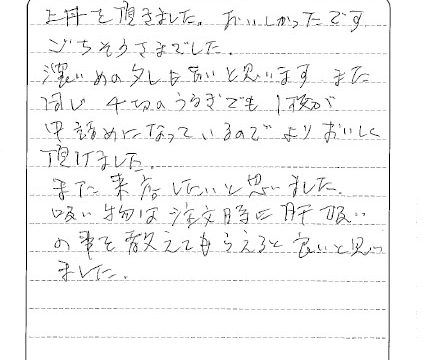 上丼を頂きました。おいしかったです
ごちそうさまでした.
濃いめのタレも良いと思います また
同じ 4切のうなぎでも 1枚が
中詰めになっているのでよりおいしく
頂けました.
また来店したいと思いました.
吸い物は注文時に肝吸い
の事を教えてもらえると良いと思い
ました.